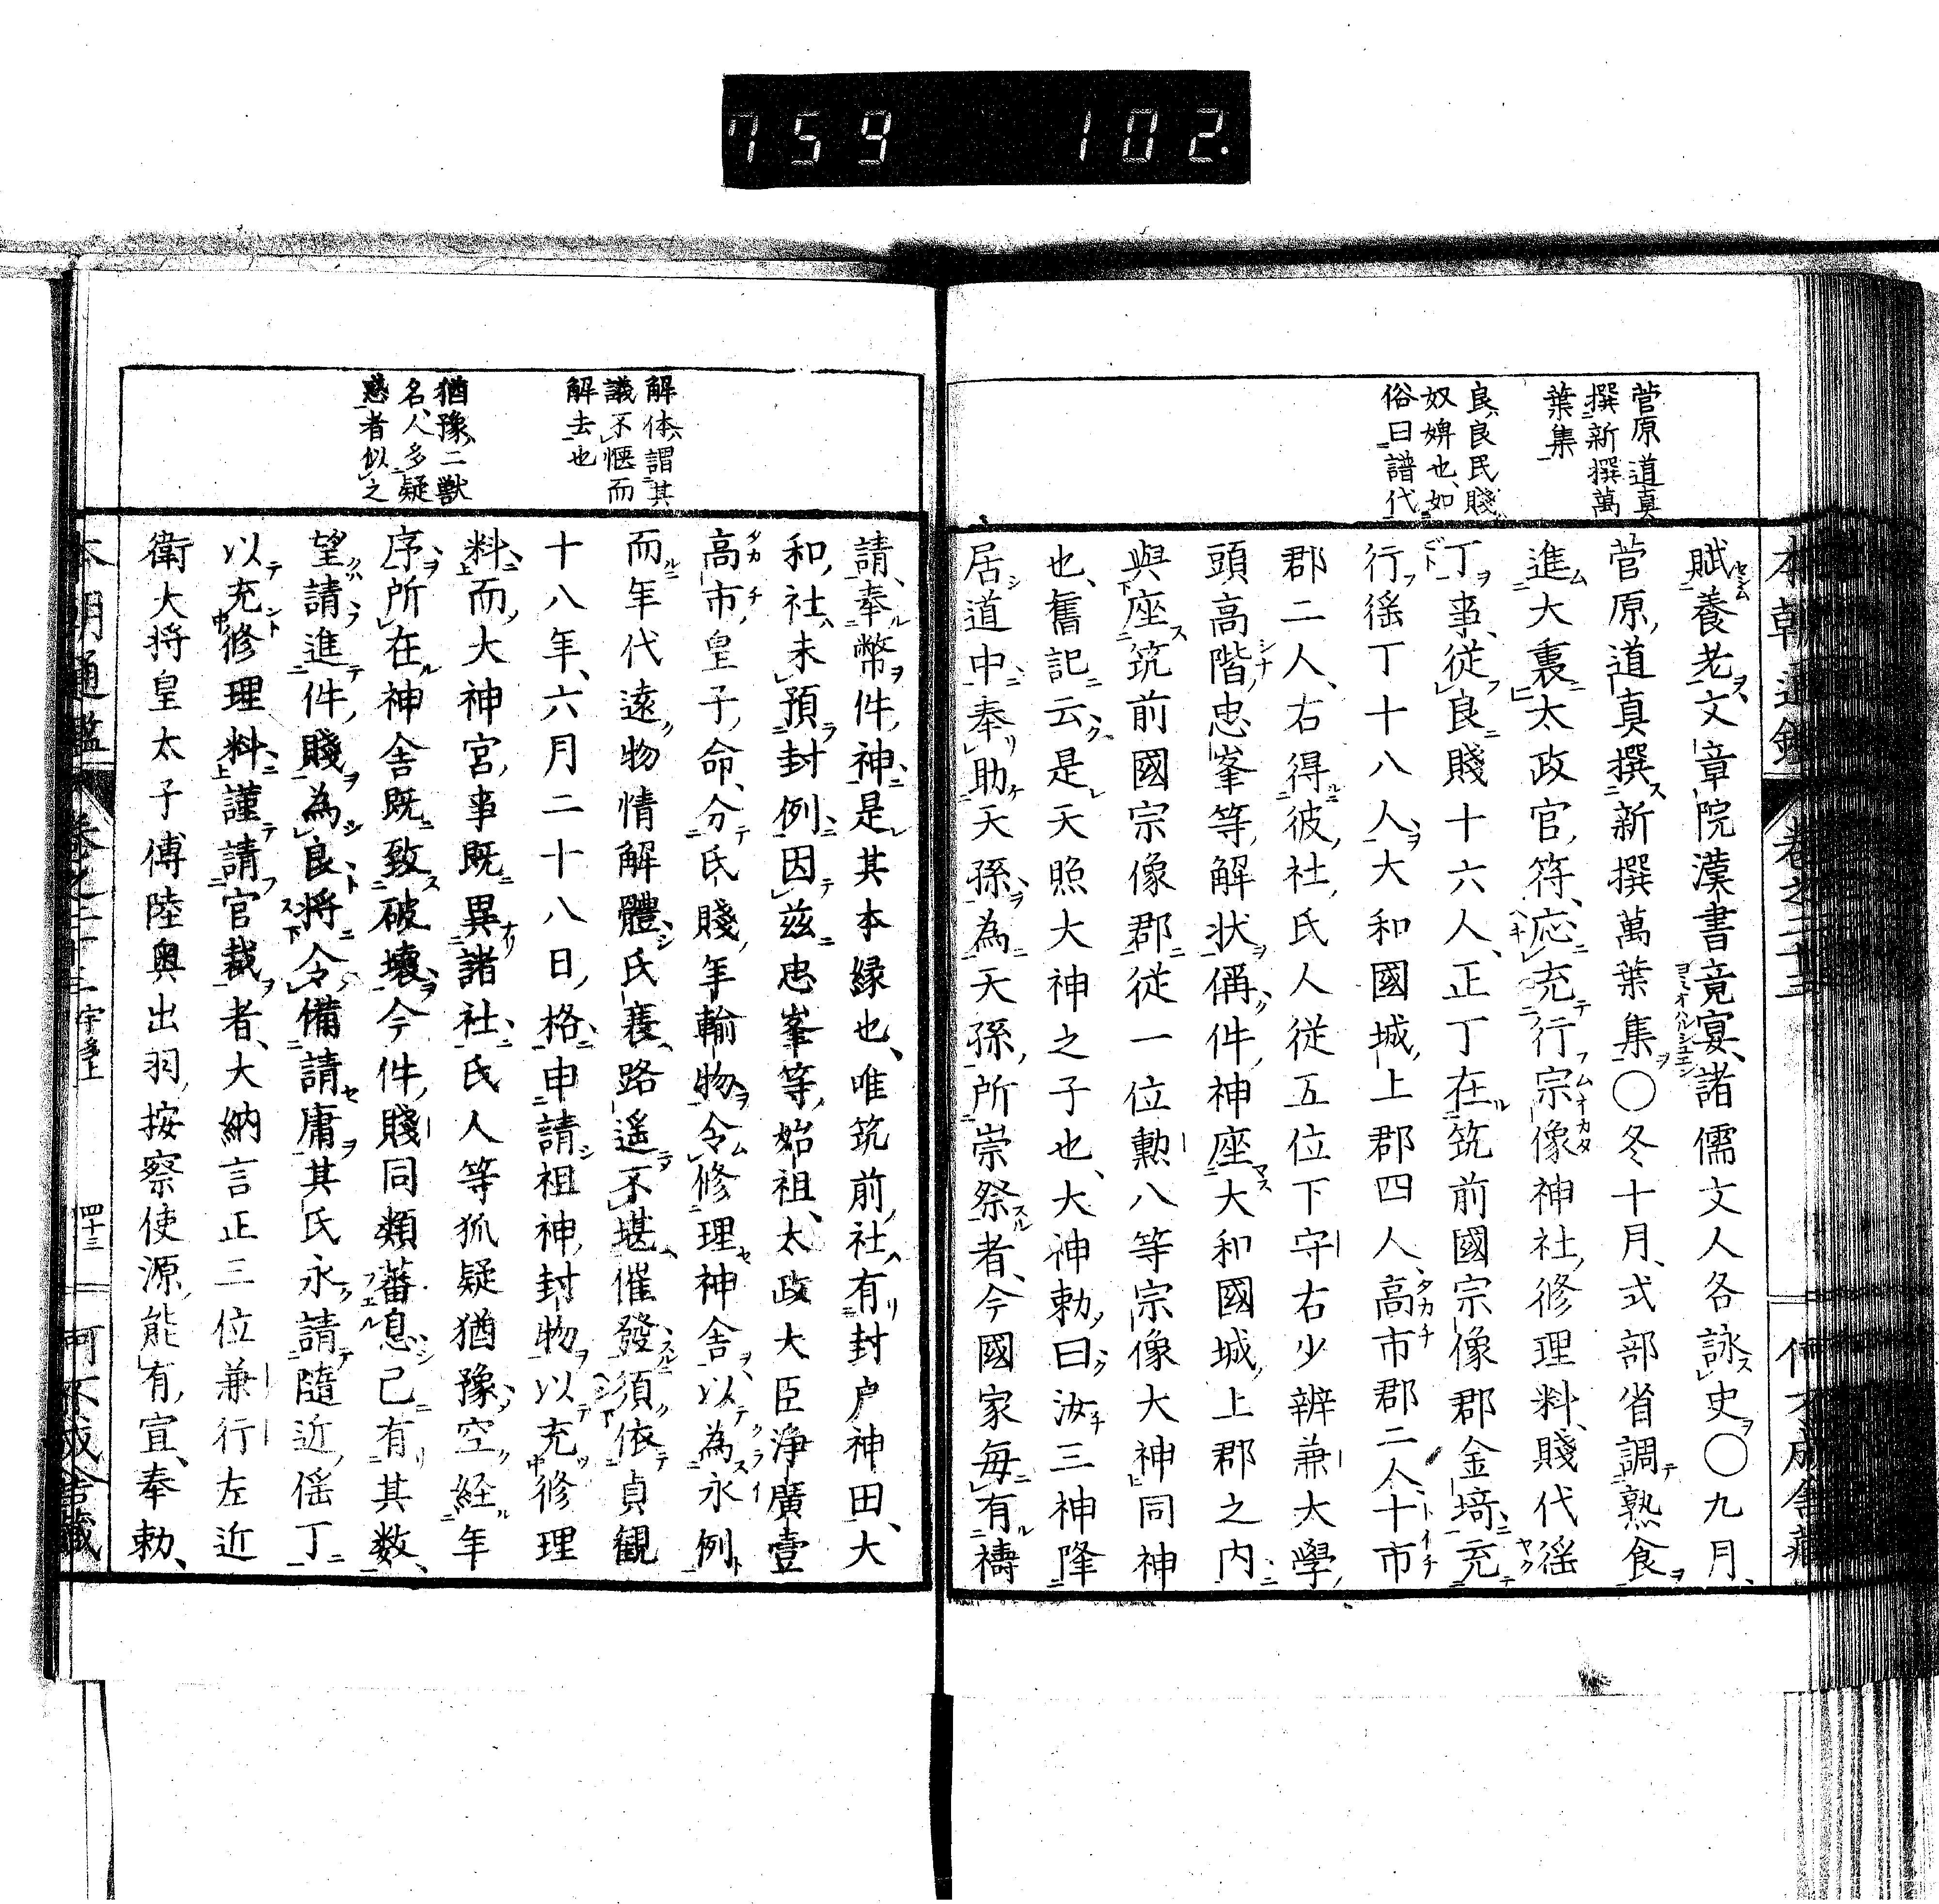 759 102.
菅原道真
撰新撰萬
葉集
良、良民賤
奴婢也、如
俗曰譜代
賦養老文章院漢書竟宴、諸儒文人各詠史〇九月、
菅原道真撰新撰萬葉集〇冬十月、式部省調熟食
進大裏太政官符、応充行宗像神社修理料、賤代徭
丁事、従良賤十六人、正丁在筑前國宗像郡金埼充
行徭丁十八人、大和國城上郡四人、高市郡二人、十市
郡二人、右得彼社氏人従五位下守右少辨兼大學
頭高階忠峯等解状偁、件神座大和國城上郡之内、
與座筑前國宗像郡従一位勲八等宗像大神同神
也、舊記云、是天照大神之子也、大神勅曰、汝三神降
居道中奉助天孫、為天孫所崇祭者、今國家毎有禱
請、奉幣件神、是其本縁也、唯筑前社有封戸神田、大
和社未預封例、因茲忠峯等始祖、太政大臣浄廣壹
高市皇子命、分氏賤年輸物、令修理神舎、以為永例
而年代遠物情解體、氏衰路遥不堪催發、須依貞観
十八年、六月二十八日格、申請祖神封物、以充修理
料、而大神宮事既異諸社、氏人等狐疑猶豫、空経年
序、所在神舎既致破壊、今件賤同類蕃息、已有其数、
望請進件賤為良、将令備請庸、其氏永請隨近徭丁
以充修理料、謹請官裁者、大納言正三位兼行左近
衛大将皇太子傅陸奥出羽按察使源能有宣、奉勅、
解体、謂其
議不愜而
解去也
猶豫、二獣
名、人多疑
惑者似之
本朝通鑑 巻之二十二 宇多上 四十三 何不成舎蔵